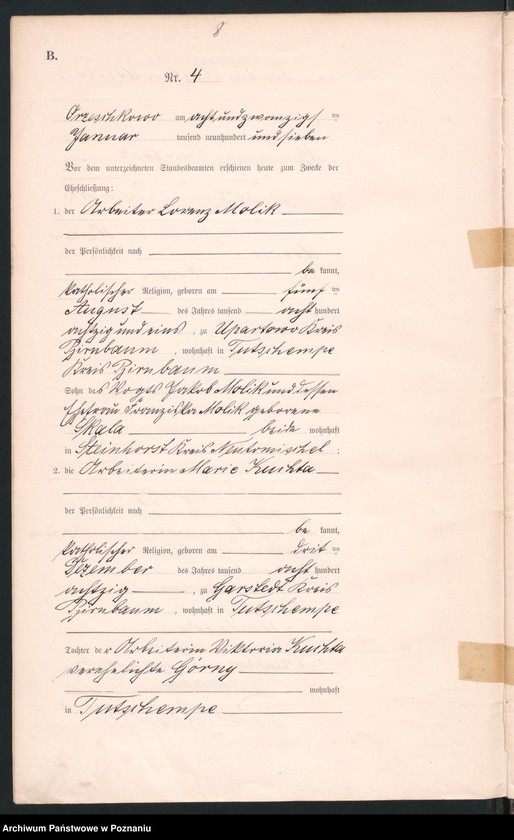 8
B.
Nr. 4
Orzeschkowo am achtundzwanzigsten
Januar tausend neunhundert und sieben
Vor dem unterzeichneten Standesbeamten erschienen heute zum Zwecke der
Eheschließung:
1. der Arbeiter Lorenz Molik
der Persönlichkeit nach
be kannt,
katholischer Religion, geboren am fünf ten
August des Jahres tausend acht hundert
achtzig und eins, zu Upartowo Kreis
Birnbaum, wohnhaft in Tutschempe
Kreis Birnbaum
Sohn des Vogts Jakob Molik und dessen
Ehefrau Franziska Molik geborene
Skala beide wohnhaft
in Steinhorst Kreis Neutomischel :
2. die Arbeiterin Marie Kuchta
der Persönlichkeit nach
be kannt,
katholischer Religion, geboren am drit ten
Dezember des Jahres tausend acht hundert
achtzig, zu Garstedt Kreis
Birnbaum, wohnhaft in Tutschempe
Tochter der Arbeiterin Viktoria Kuchta
verehelichte Górny
wohnhaft
in Tutschempe
Archiwum Państwowe w Poznaniu